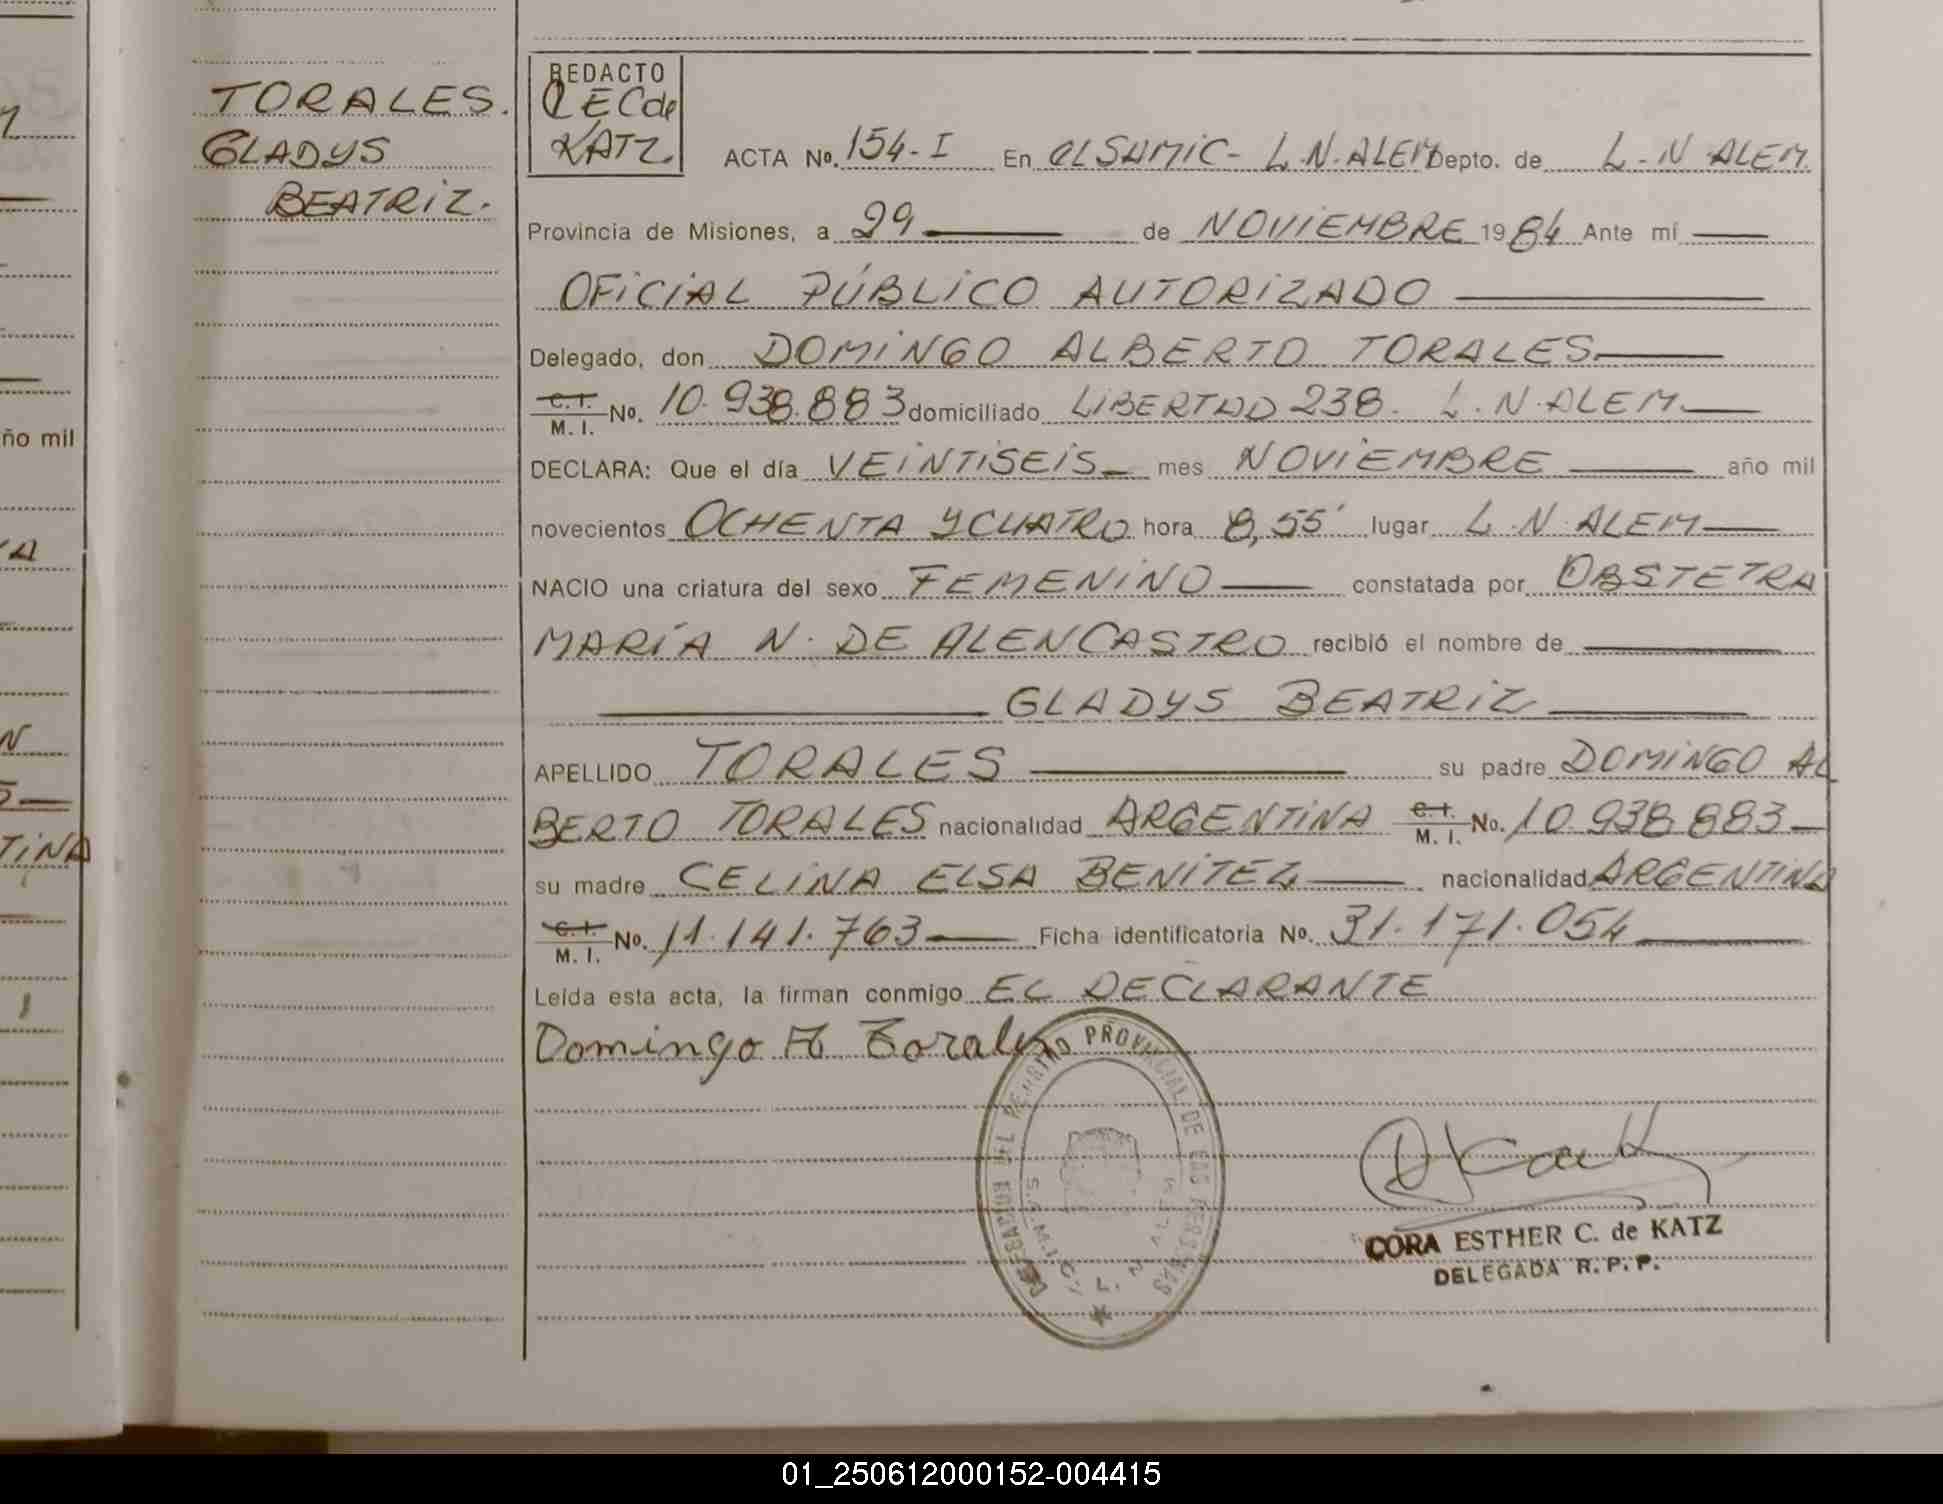 TORALES.
GLADYS
BEATRIZ.
REDACTO
CEC de
KATZ
ACTA No. 154-I En el SAMIC- L.N.ALEM Depto. de L-N ALEM.
Provincia de Misiones, a 29 de NOVIEMBRE 1984 Ante mí
OFICIAL PÚBLICO AUTORIZADO
Delegado, don DOMINGO ALBERTO TORALES
C. I. M. I. No. 10.938.883 domiciliado LIBERTAD 238. L.N.ALEM
DECLARA: Que el día VEINTISEIS mes NOVIEMBRE año mil
novecientos OCHENTA Y CUATRO hora 8,55' lugar L.N.ALEM
NACIO una criatura del sexo FEMENINO constatada por OBSTETRA
MARÍA N. DE ALENCASTRO recibió el nombre de
GLADYS BEATRIZ
APELLIDO TORALES su padre DOMINGO AL
BERTO TORALES nacionalidad ARGENTINA C. I. M. I. No. 10.938.883
su madre CELINA ELSA BENÍTEZ nacionalidad ARGENTINA
C. I. M. I. No. 11.141.763 Ficha identificatoria No. 31.171.054
Leída esta acta, la firman conmigo EL DECLARANTE
Domingo A Torales
PROVINCIAL DE LAS PERSONAS
CORA ESTHER C. de KATZ
DELEGADA R. P. P.
ño mil
TINA
01_250612000152-004415